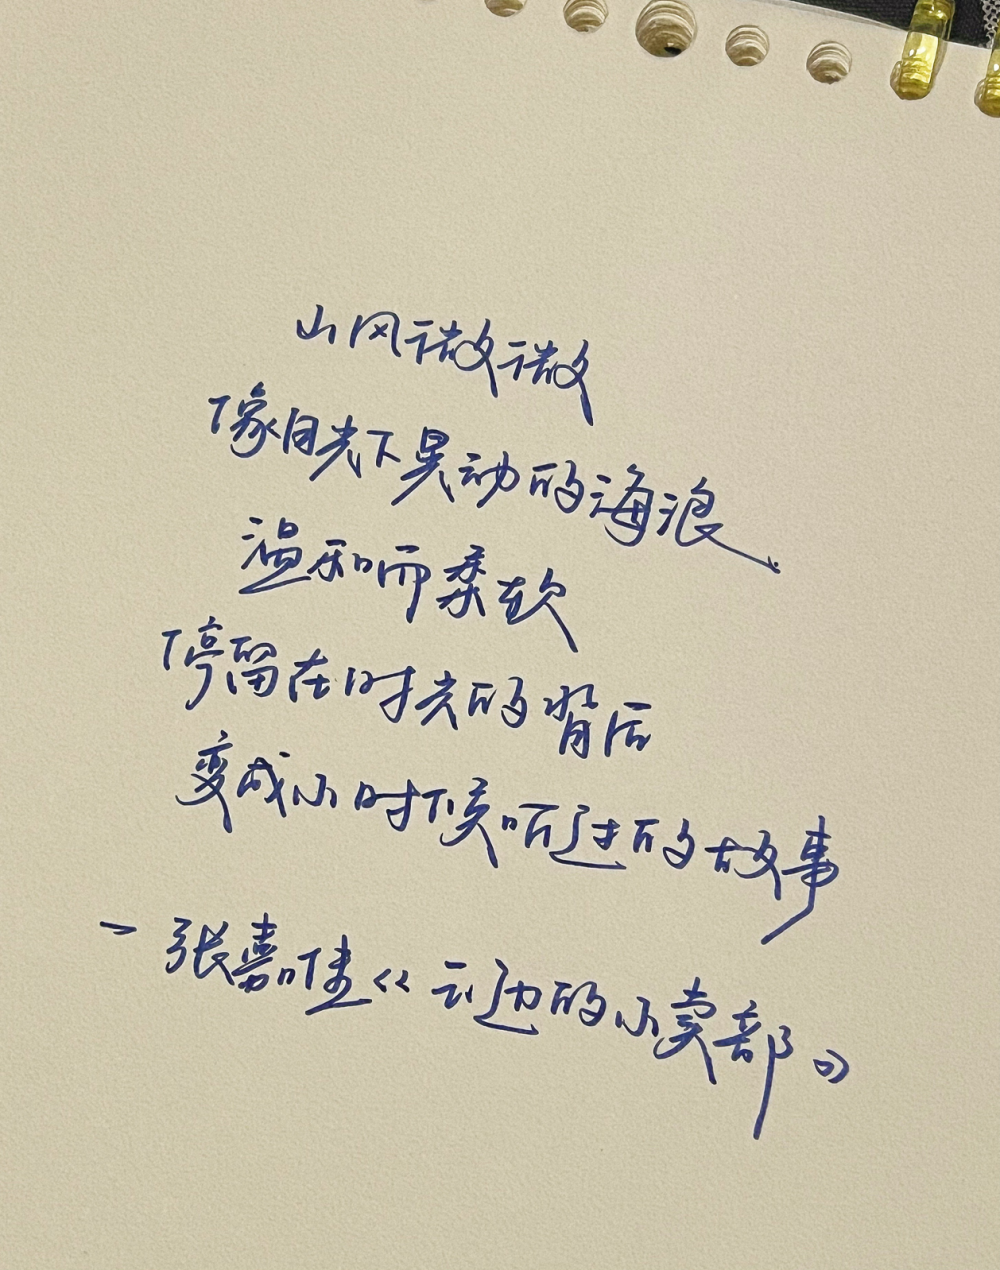 山风微微
像月光下晃动的海浪
温和而柔软
停留在时光的背后
变成小时候听过的故事
—张嘉佳《云边的小卖部》